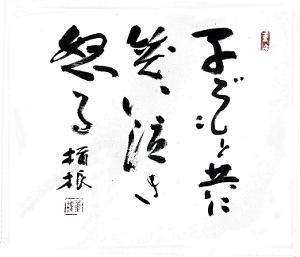 子どもと共に
笑い泣き
怒る